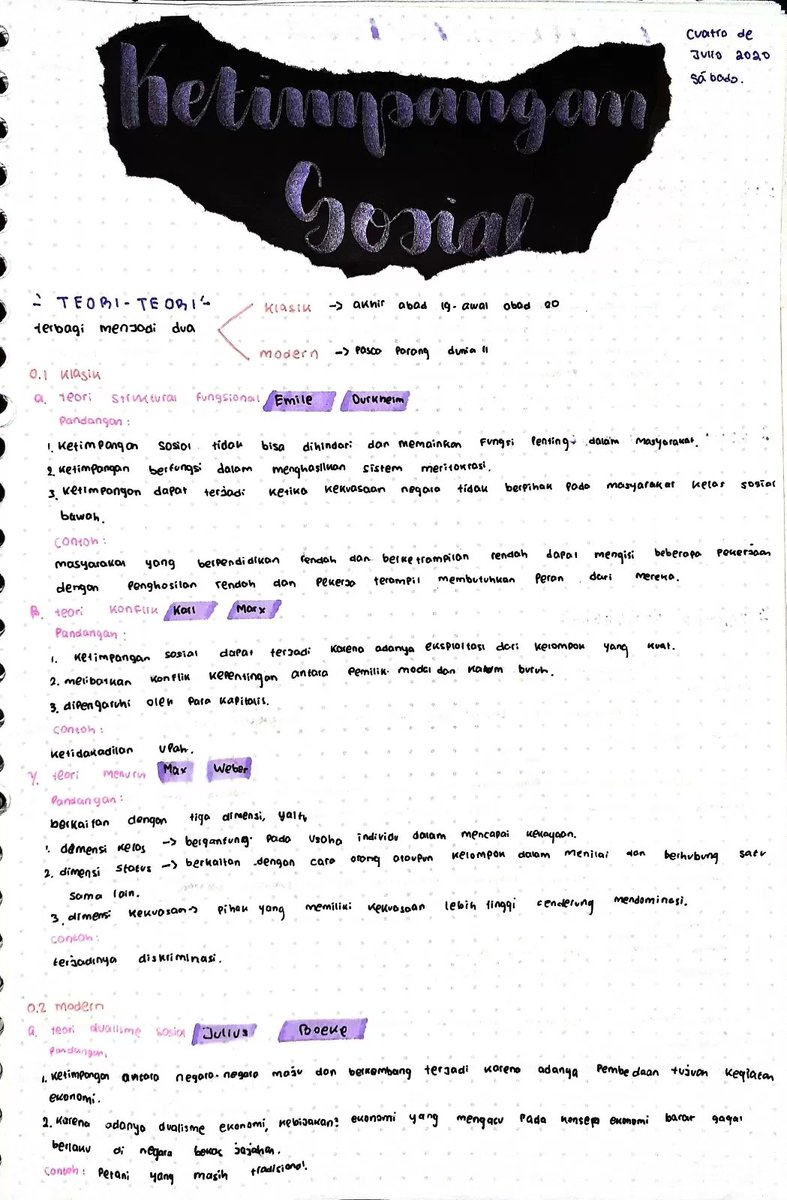 Cuatro de
Julio 2020
Sábado.
Ketimpangan
Sosial
TEORI-TEORI
terbagi menjadi dua
Klasik -> akhir abad 19 - awal abad 20
modern -> Pasca Perang dunia II
0.1 Klasik
a. teori struktural fungsional Emile Durkheim
Pandangan:
1. Ketimpangan sosial tidak bisa dihindari dan memainkan fungsi penting dalam masyarakat.
2. Ketimpangan berfungsi dalam menghasilkan sistem meritokrasi.
3. Ketimpangan dapat terjadi ketika kekuasaan negara tidak berpihak pada masyarakat kelas sosial
bawah.
Contoh:
masyarakat yang berpendidikan rendah dan berketrampilan rendah dapat mengisi beberapa pekerjaan
dengan penghasilan rendah dan pekerja terampil membutuhkan peran dari mereka.
β. teori konflik Karl Marx
Pandangan:
1. Ketimpangan sosial dapat terjadi karena adanya eksploitasi dari kelompok yang kuat.
2. melibatkan konflik kepentingan antara pemilik modal dan kaum buruh.
3. dipengaruhi oleh para kapitalis.
Contoh:
ketidakadilan upah.
γ. teori menurut Max Weber
Pandangan:
berkaitan dengan tiga dimensi, yaitu
1. dimensi kelas -> bergantung pada usaha individu dalam mencapai kekayaan.
2. dimensi status -> berkaitan dengan cara orang ataupun kelompok dalam menilai dan berhubung satu
sama lain.
3. dimensi kekuasan -> pihak yang memiliki kekuasaan lebih tinggi cenderung mendominasi.
contoh:
terjadinya diskriminasi.
0.2 modern
a. teori dualisme sosial Julius Boeke
Pandangan:
1. Ketimpangan antara negara-negara maju dan berkembang terjadi karena adanya pembedaan tujuan kegiatan
ekonomi.
2. Karena adanya dualisme ekonomi, kebijakan² ekonomi yang mengacu pada konsep ekonomi barat gagal
berlaku di negara bekas jajahan.
Contoh: Petani yang masih tradisional.